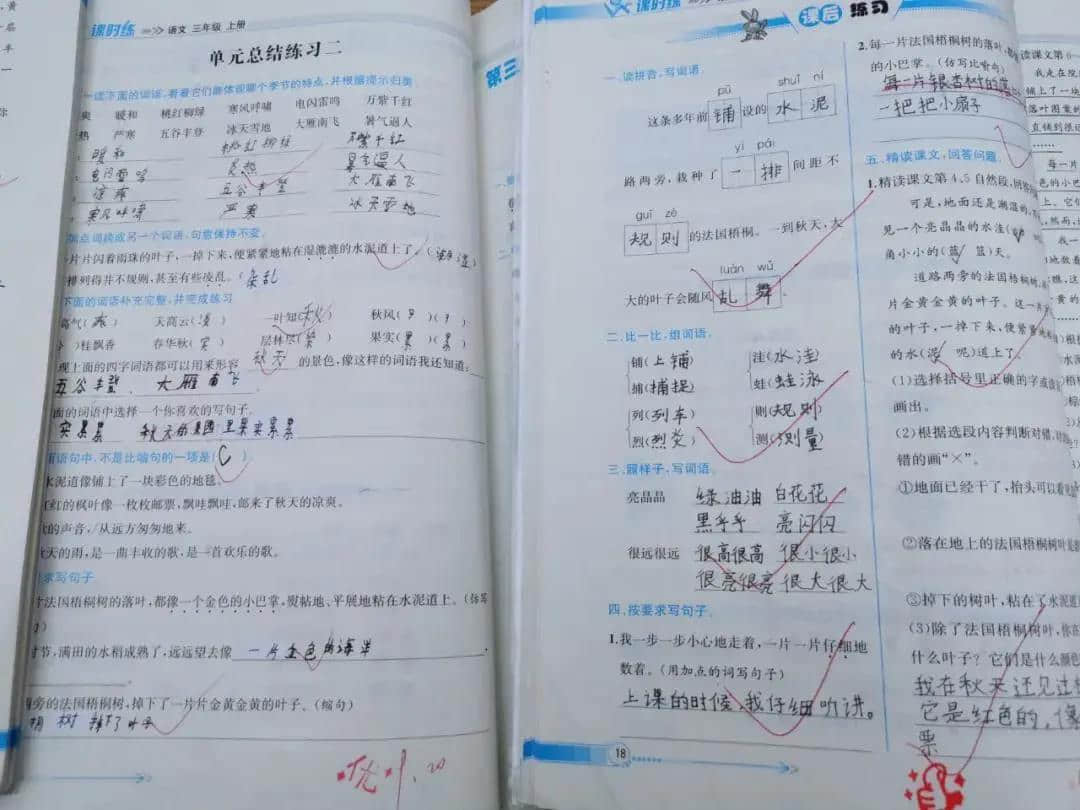 课时练 语文 三年级 上册
单元总结练习二
一读下面的词语,看看它们都体现哪个季节的特点,并根据提示归类
爽 暖和 桃红柳绿 寒风呼啸 电闪雷鸣 万紫千红
热 严寒 五谷丰登 冰天雪地 大雁南飞 暑气逼人
暖和 桃红柳绿 万紫千红
炎热 暑气逼人
五谷丰登 大雁南飞
寒风呼啸 严寒 冰天雪地
点词换成另一个词语,句意保持不变。
片片闪着雨珠的叶子,一掉下来,便紧紧地粘在湿漉漉的水泥道上了。
排列得并不规则,甚至有些凌乱。(杂乱)
下面的词语补充完整,并完成练习
高气( ) 天高云( ) 一叶知(秋) 秋风( )( )
桂飘香 春华秋(实) 层林尽( ) 果实(累)(累)
现上面的四字词语都可以用来形容 秋天 的景色,像这样的词语我还知道:
五谷丰登、大雁南飞
面的词语中选择一个你喜欢的写句子。
实累累 秋天的果园里果实累累
有语句中,不是比喻句的一项是( C )
水泥道像铺上了一块彩色的地毯。
红的枫叶像一枚枚邮票,飘哇飘哇,邮来了秋天的凉爽。
的声音,从远方匆匆地来。
天的雨,是一曲丰收的歌,是一首欢乐的歌。
求写句子
法国梧桐树的落叶,都像一个金色的小巴掌,熨帖地、平展地粘在水泥道上。(仿写
时节,满田的水稻成熟了,远远望去像 一片金色的海洋
旁的法国梧桐树,掉下了一片片金黄金黄的叶子。(缩句)
桐树掉下了叶子
优 9.20
第三
课时练
课后 练习
一、读拼音,写词语。
pū shuǐ ní
这条多年前 铺 设的 水 泥
yì pái
路两旁,栽种了 一 排 间距不
guī zé
规 则 的法国梧桐。一到秋天,大
luàn wǔ
大的叶子会随风 乱 舞。
二、比一比,组词语。
铺(上铺) 洼(水洼)
捕(捕捉) 蛙(蛙泳)
列(列车) 则(规则)
烈(烈炎) 测(测量)
三、照样子,写词语。
亮晶晶 绿油油 白花花
黑乎乎 亮闪闪
很远很远 很高很高 很小很小
很亮很亮 很大很大
四、按要求写句子。
1.我一步一步小心地走着,一片一片仔细地
数着。(用加点的词写句子)
上课的时候,我仔细听讲。
18
2.每一片法国梧桐树的落叶,都
的小巴掌。(仿写比喻句)
每一片银杏树的
一把把小扇子
五、精读课文,回答问题。
1.精读课文第4、5自然段,回答
可是,地面还是潮湿的,
见一个亮晶晶的水洼(
角小小的(蓝 篮)天。
道路两旁的法国梧桐树,
片金黄金黄的叶子。这一片
的叶子,一掉下来,便紧紧地
的水(泥 呢)道上了。
(1)选择括号里正确的字或
画出。
(2)根据选段内容判断对错,对
错的画“×”。
①地面已经干了,抬头可以看
②落在地上的法国梧桐树叶
③掉下的树叶,粘在了水泥道
(3)除了法国梧桐树叶,你
什么叶子?它们是什么颜
我在秋来还见过
它是红色的,像
票